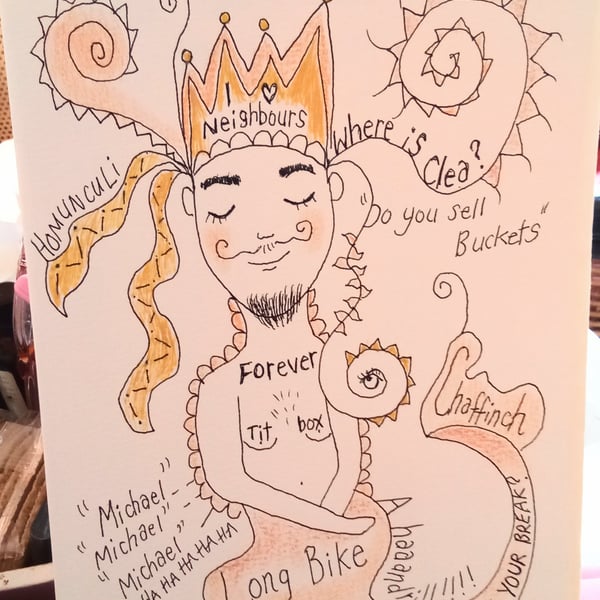 I ♡
Neighbours
Where is
Clea?
HOMUNCULi
"Do you sell
Buckets"
Forever
Tit box
Chaffinch
"Michael"
"Michael"
"Michael"
HA HA HA HA HA HA
Long Bike
YOUR BREAK?